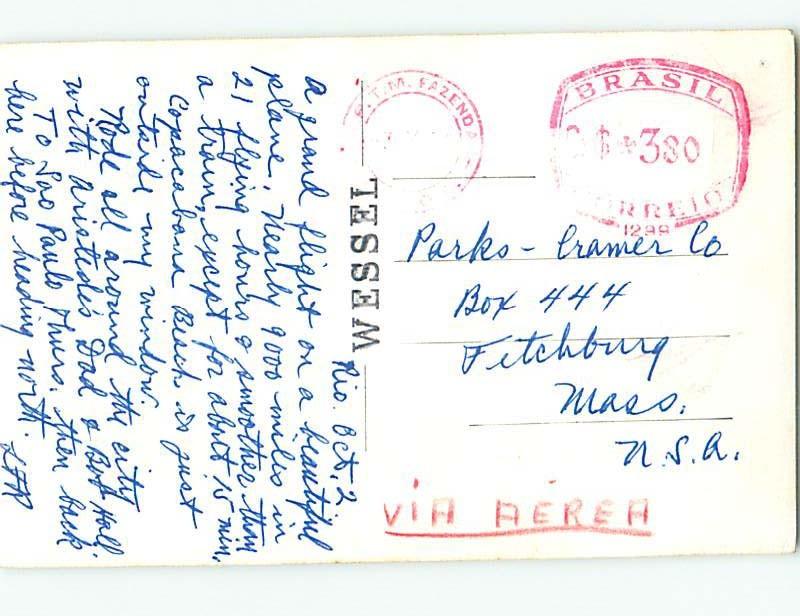 Rio. Oct. 2
a grand flight on a beautiful
plane. Nearly 9000 miles in
21 flying hours & smoother than
a train, except for about 15 min.
Copacabana Beach is just
outside my window.
Rode all around the city
with Aristede's Dad & Bert Hall.
To Sao Paulo Thurs. then back
here before heading north.
WESSEL
T.M. FAZENDA
BRASIL
380
CORREIO
1299
Parks - Cramer Co
Box 444
Fitchburg
Mass.
U.S.A.
VIA AÉREA